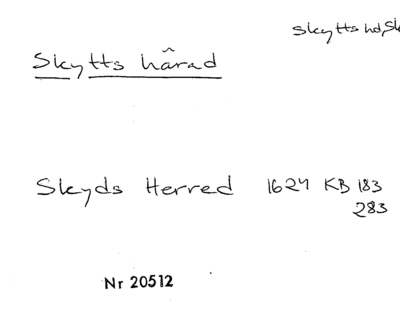 Skytts hd, Sk
Skytts härad
Skyds Herred 1624 KB 183
283
Nr 20512